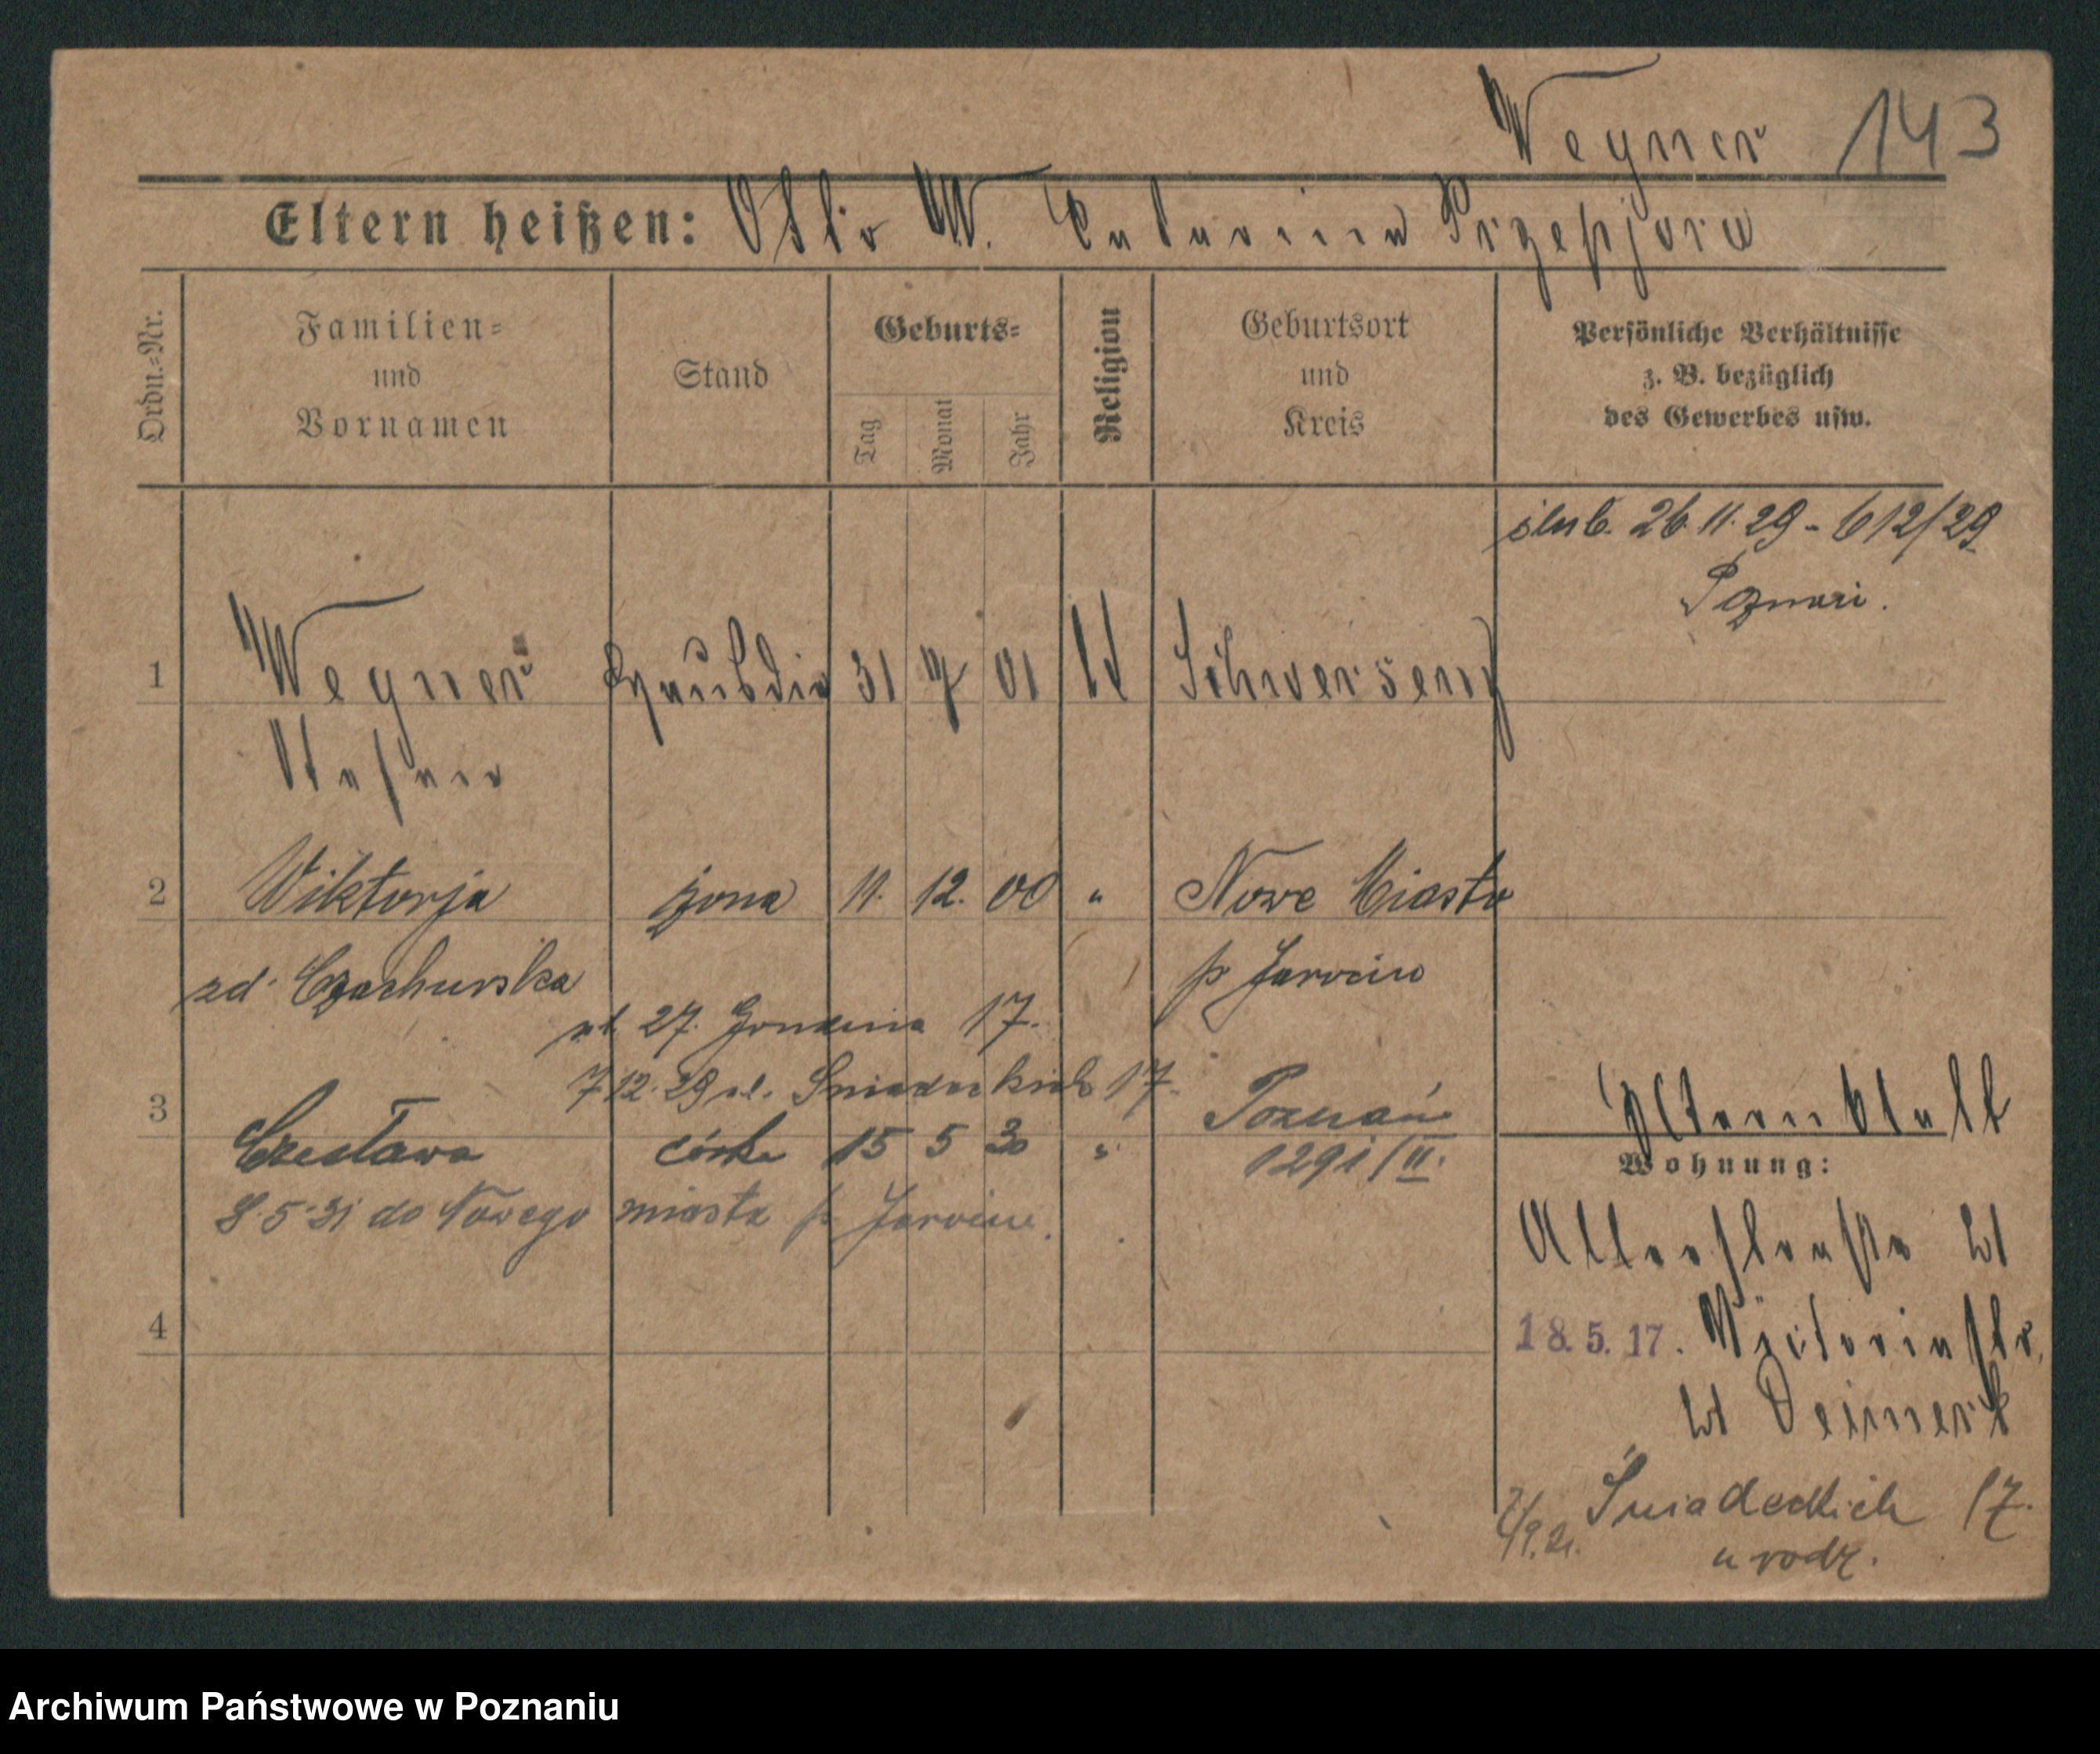 Wegner 143
Eltern heißen: Otto W. Catarina Przepjora
Ordn.-Nr.
Familien- und Vornamen
Stand
Geburts-
Tag
Monat
Jahr
Religion
Geburtsort und Kreis
Persönliche Verhältnisse
z. B. bezüglich
des Gewerbes usw.
ślub. 26.11.29 - 612/29
Poznań.
1 Wegner 31 01 Schwersenz
Stefan
2 Wiktorja żona 11. 12. 00 " Nowe Miasto
zd. Czachurska p Jarocin
ul 27. Grudnia 17.
7 12. 29 ul. Sniadeckich 17.
3 Czesława córka 15 5 30 " Poznań
1291/II.
8.5.31 do Nowego miasta p Jarocin.
4
Wohnung:
18.5.17. Victoriastr.
Śniadeckich 17.
u rodz.
Archiwum Państwowe w Poznaniu